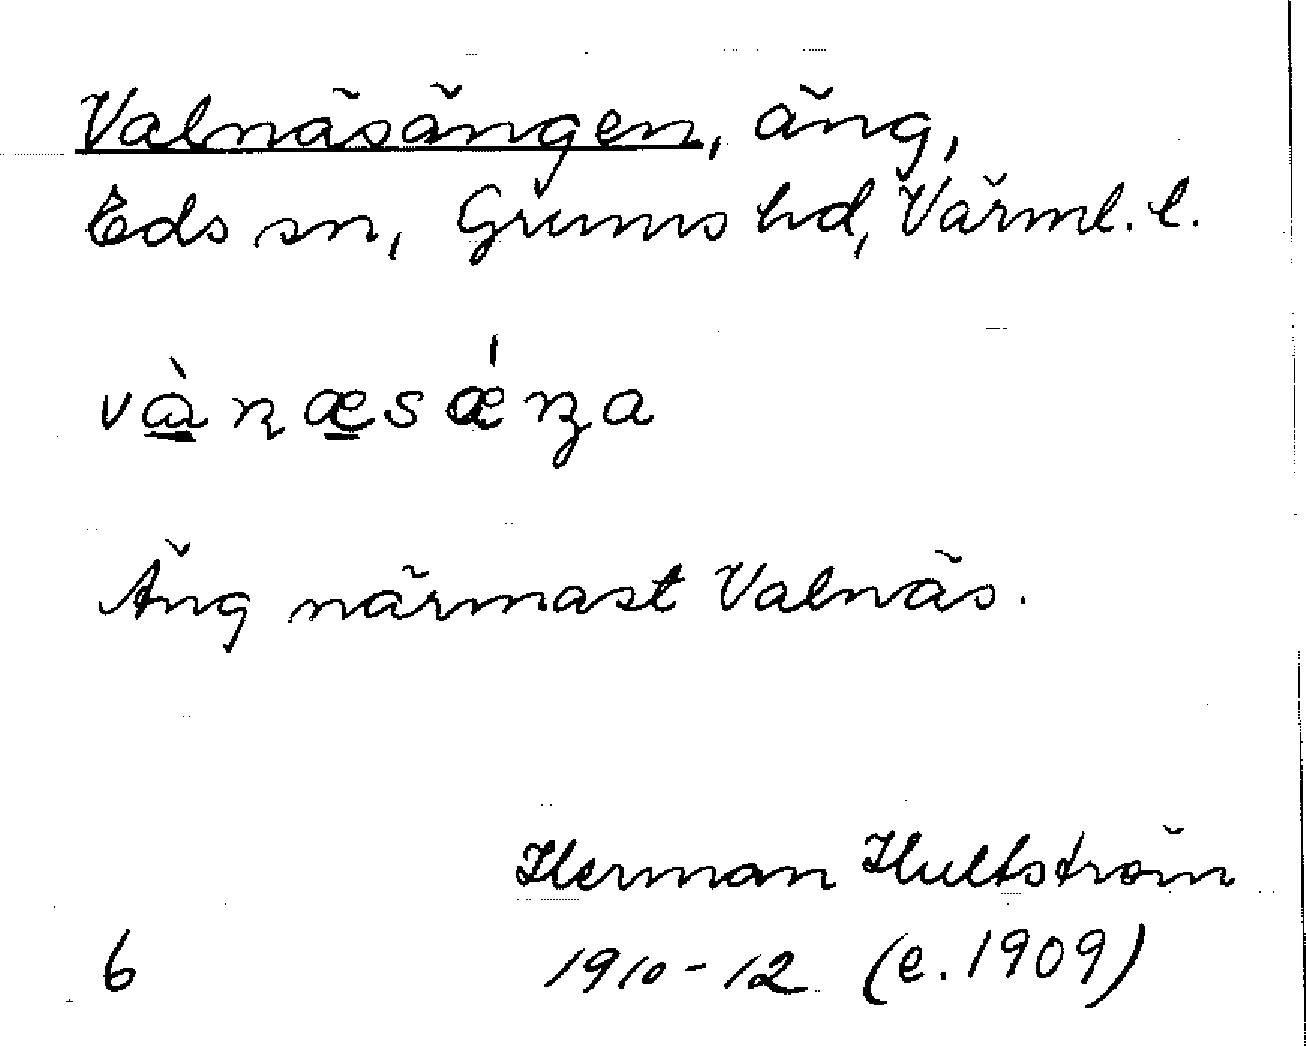 Valnäsängen, äng,
Eds sn, Grums hd, Värml. l.
vànæsǽŋa
Äng närmast Valnäs.
Herman Hultström
6 1910-12 (e. 1909)